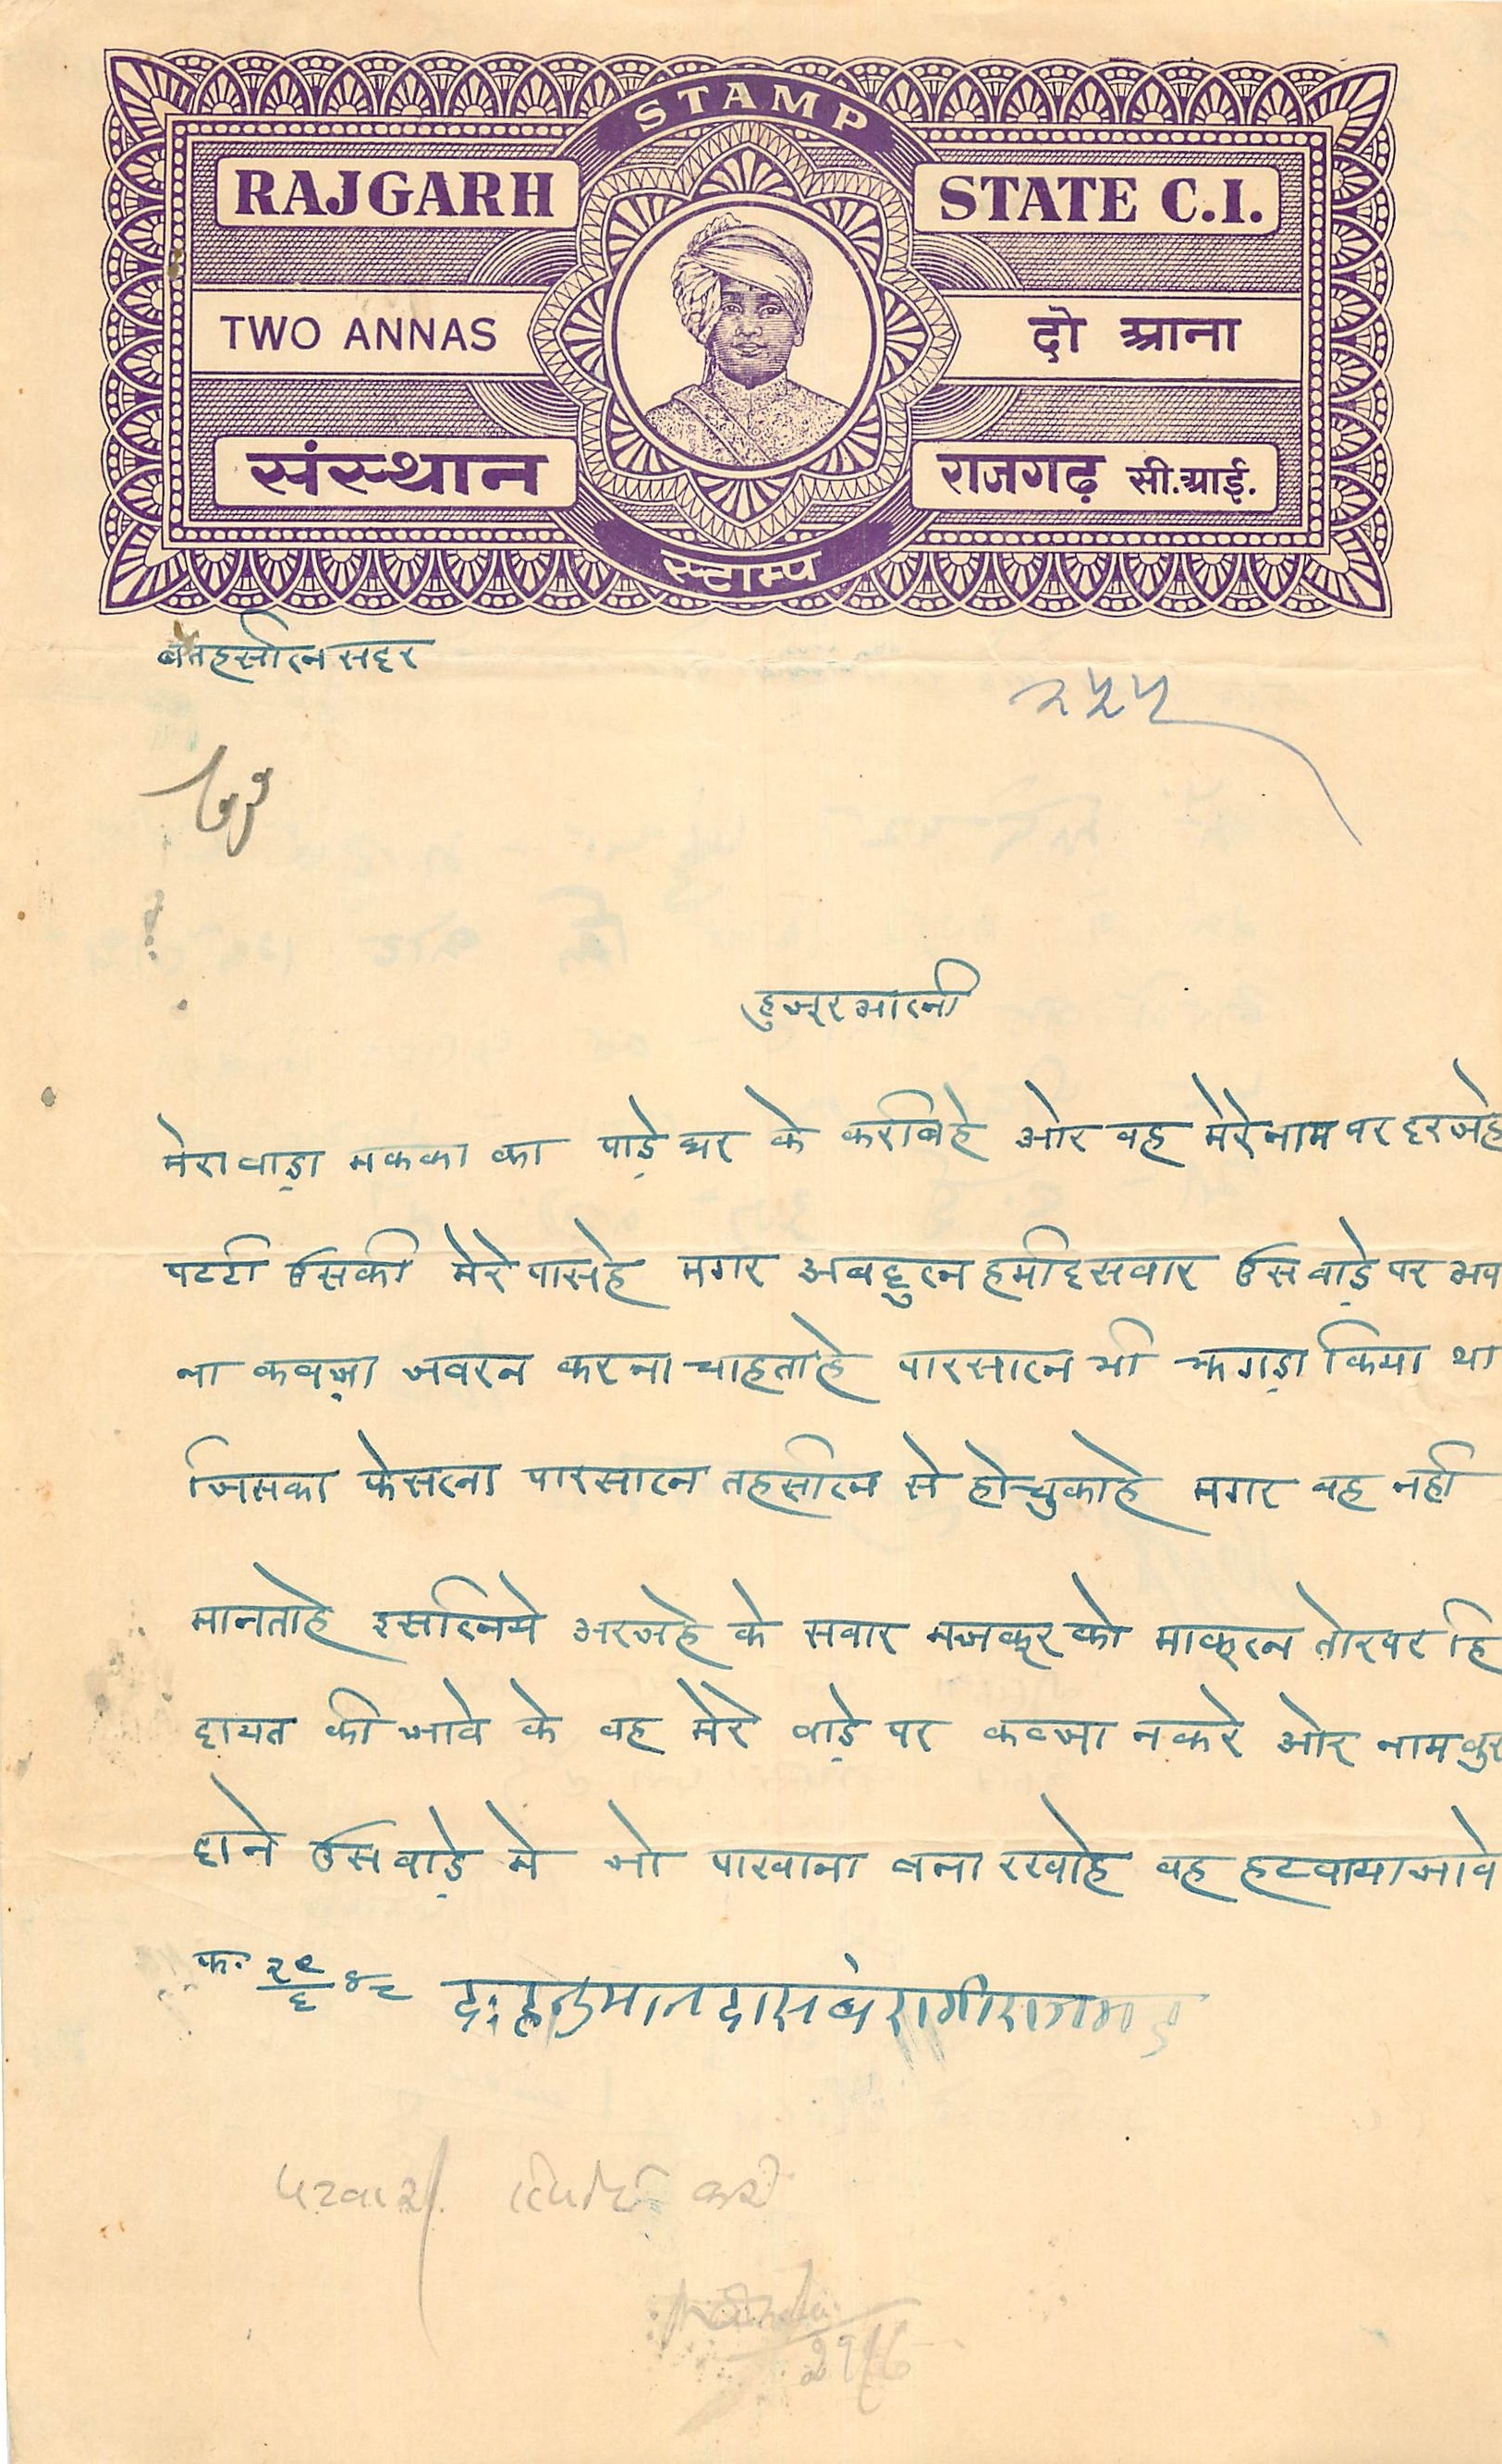 STAMP
RAJGARH STATE C.I.
TWO ANNAS दो आना
संस्थान राजगढ़ सी.आई.
स्टाम्प
बतहसील सदर
२५५
हुजूर आली
मेरा वाड़ा मकका का पाड़े घर के करीब हे ओर वह मेरे नाम पर दरज हे
पटटी उसकी मेरे पास हे मगर अबदुल हमीद सवार उस वाड़े पर अप
ना कबज़ा जबरन करना चाहता हे पारसाल भी झगड़ा किया था
जिसका फेसला पारसाल तहसील से हो चुका हे मगर वह नही
मानता हे इसलिये अरज हे के सवार मजकूर को माकूल तोर पर हि
दायत की जावे के वह मेरे वाड़े पर कब्जा न करे ओर नाम
हाने उस वाड़े मे जो पाखाना बना रखा हे वह हटवाया जावे
फ. २९/६ ४८ द: हनुमानदास बेरागी राजगड
पटवारी रिपोर्ट करे
29/6